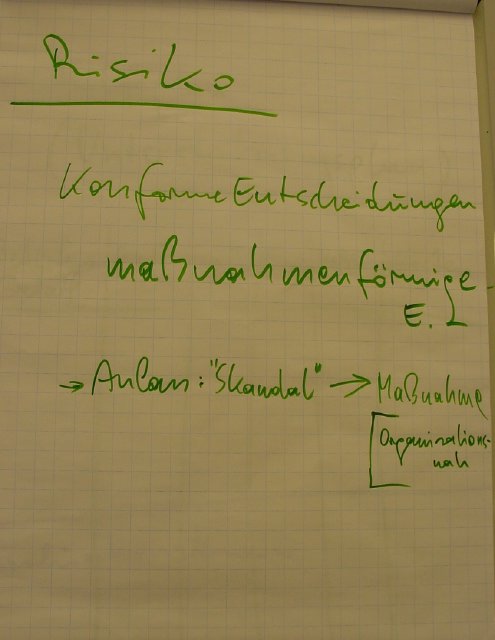 Risiko
Konforme Entscheidungen
maßnahmenförmige
E.
→ Anlass: "Skandal" → Maßnahme
Organisations-
nah